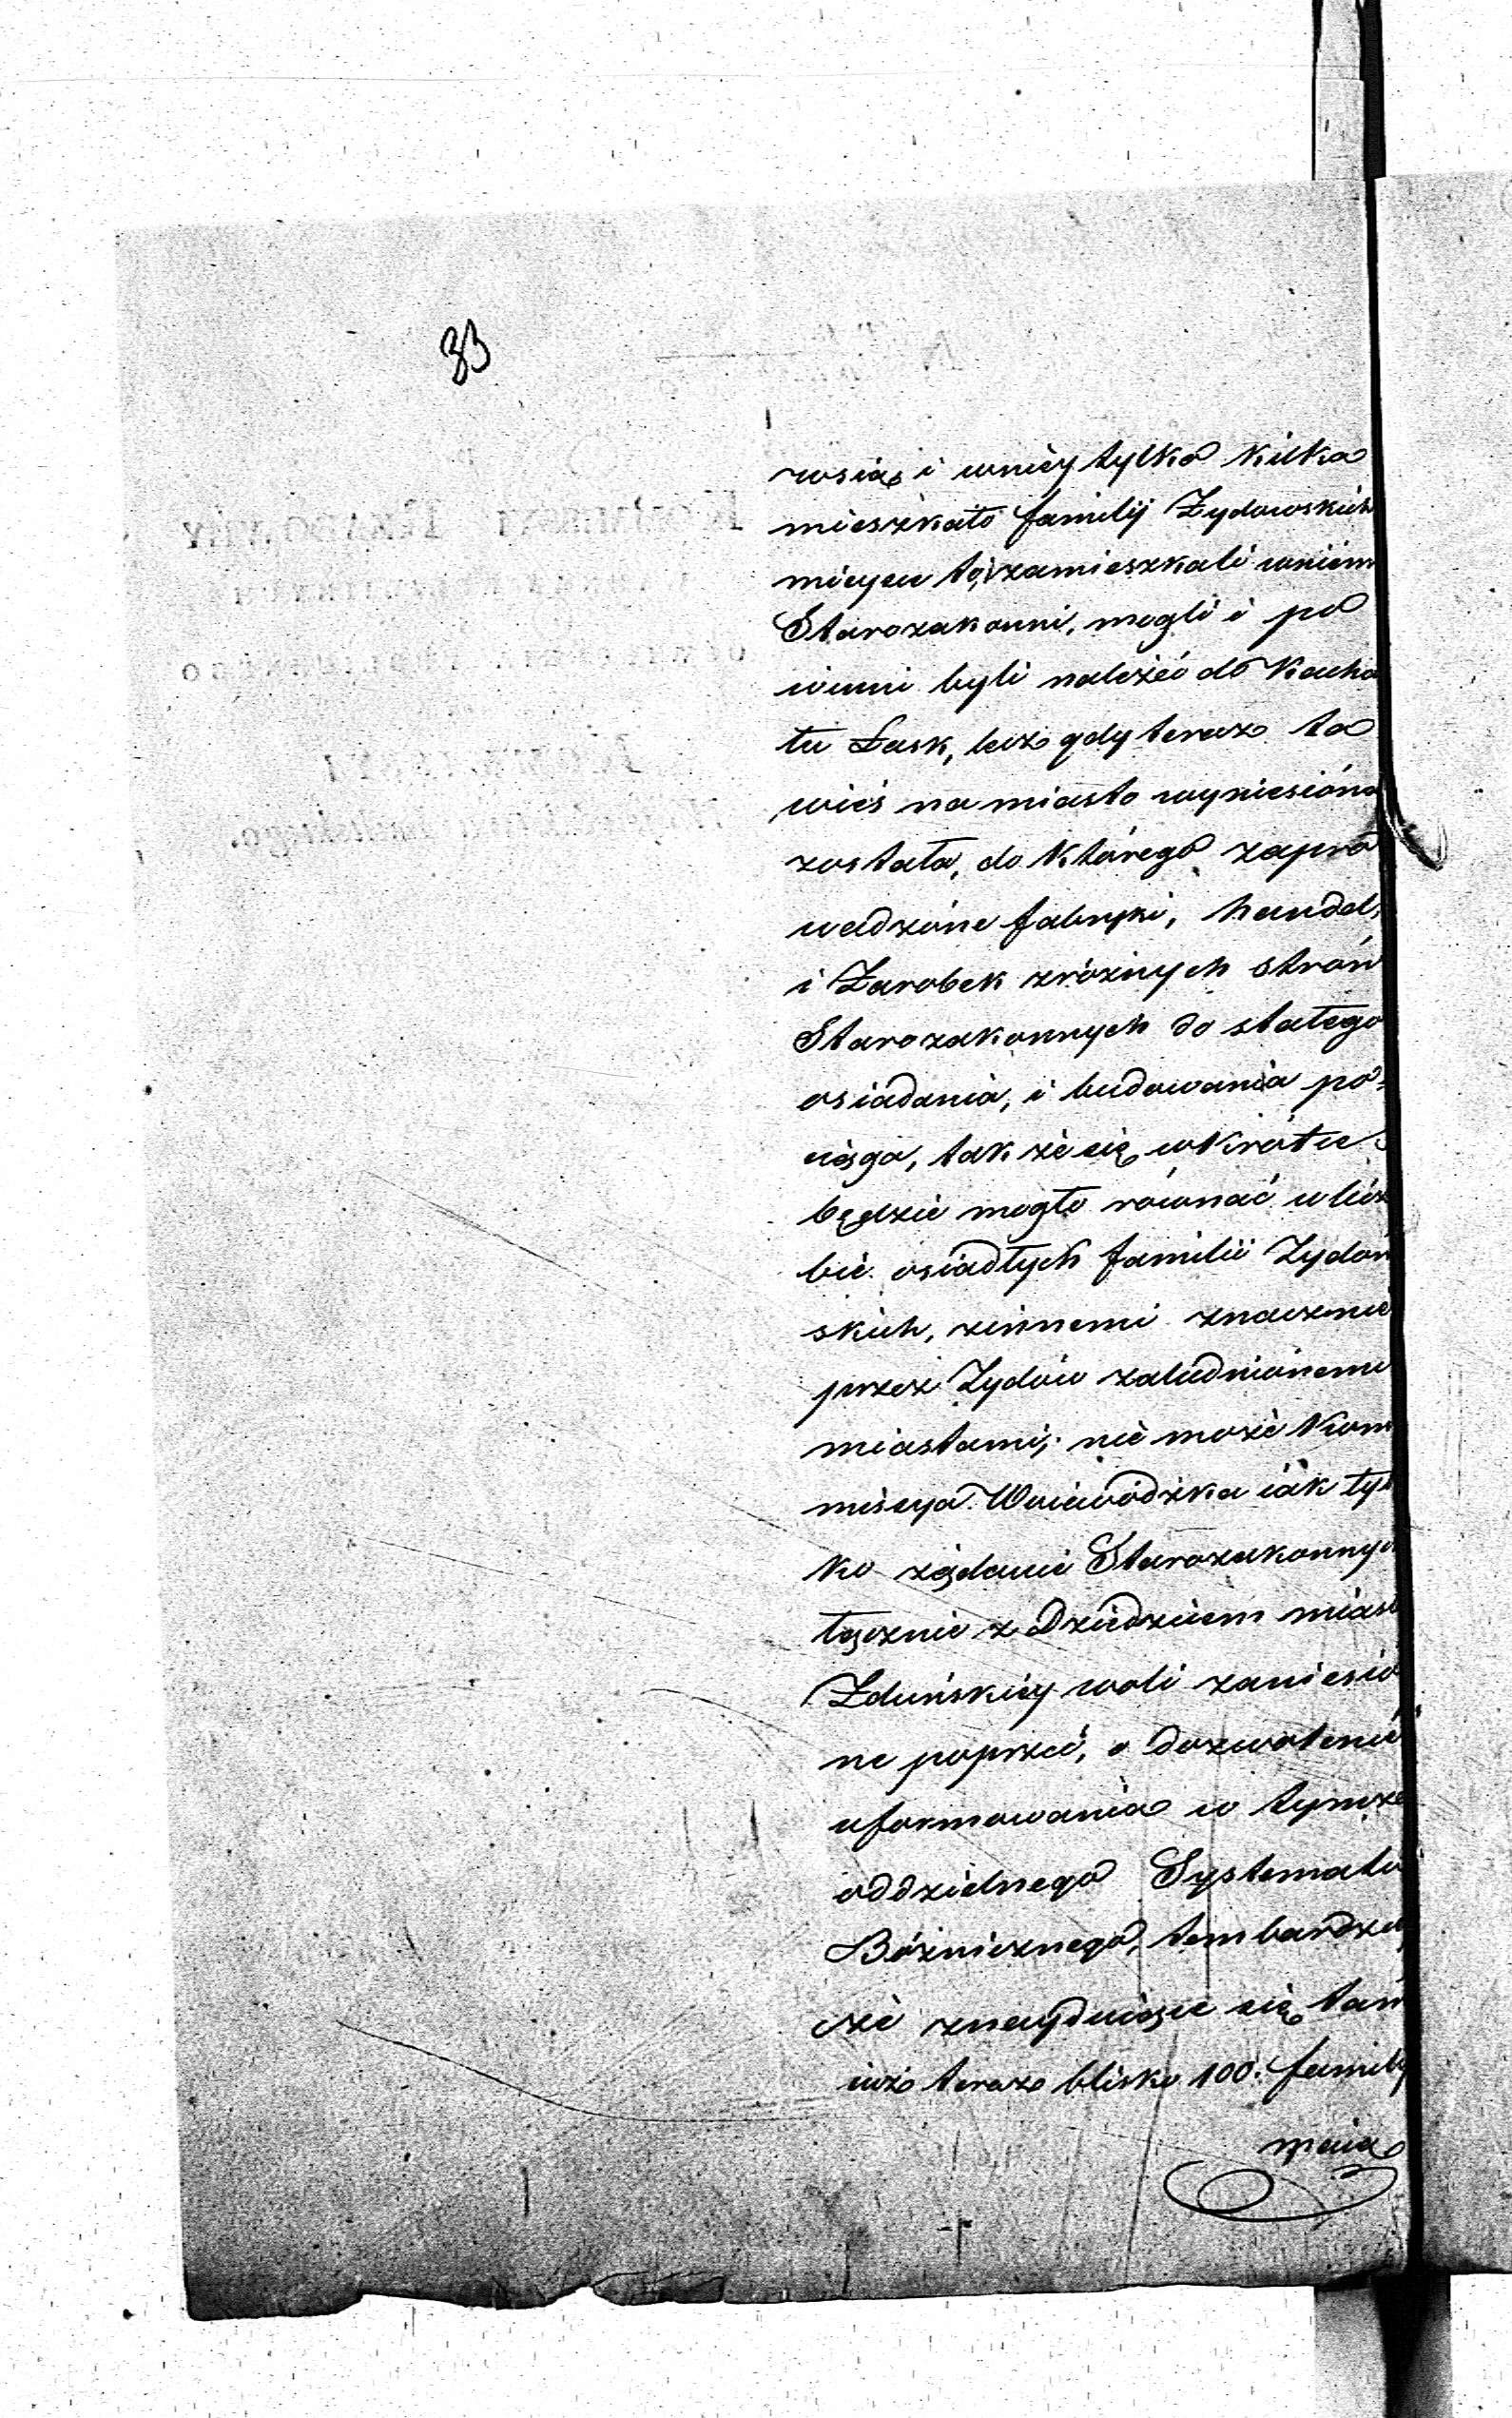 83
wsią i wniey tylko kilka
mieszkało familij Zydowskich
mieyscu to, zamieszkali wniem
Starozakonni, mogli i po
winni byli należeć do Kacha
łu Łask, lecz gdy teraz ta
wieś na miasto wyniesióna
została, do którego zapro
wadzóne fabryki, handel,
i Zarobek zróżnych strón
Starozakonnych do stałego
osiadania, i budowania po=
ciąga, tak że się wkrótce
będzie mogło równać w licz
bie osiadłych familii Zydow
skich, zinnemi znacznie
przez Zydów zaludnionemi
miastami; nie może Kom
missya Woiewódzka iak tyl
ko żądanie Starozakonnych
łącznie z Dziedzicem miasta
Zduńskiey woli zaniesio
ne poprzeć, o dozwolenie
uformowania w tymże
oddzielnego Systematu
Bóżnicznego, tembardziey
że znayduiące się tam
iuż teraz blisko 100. familij
maią